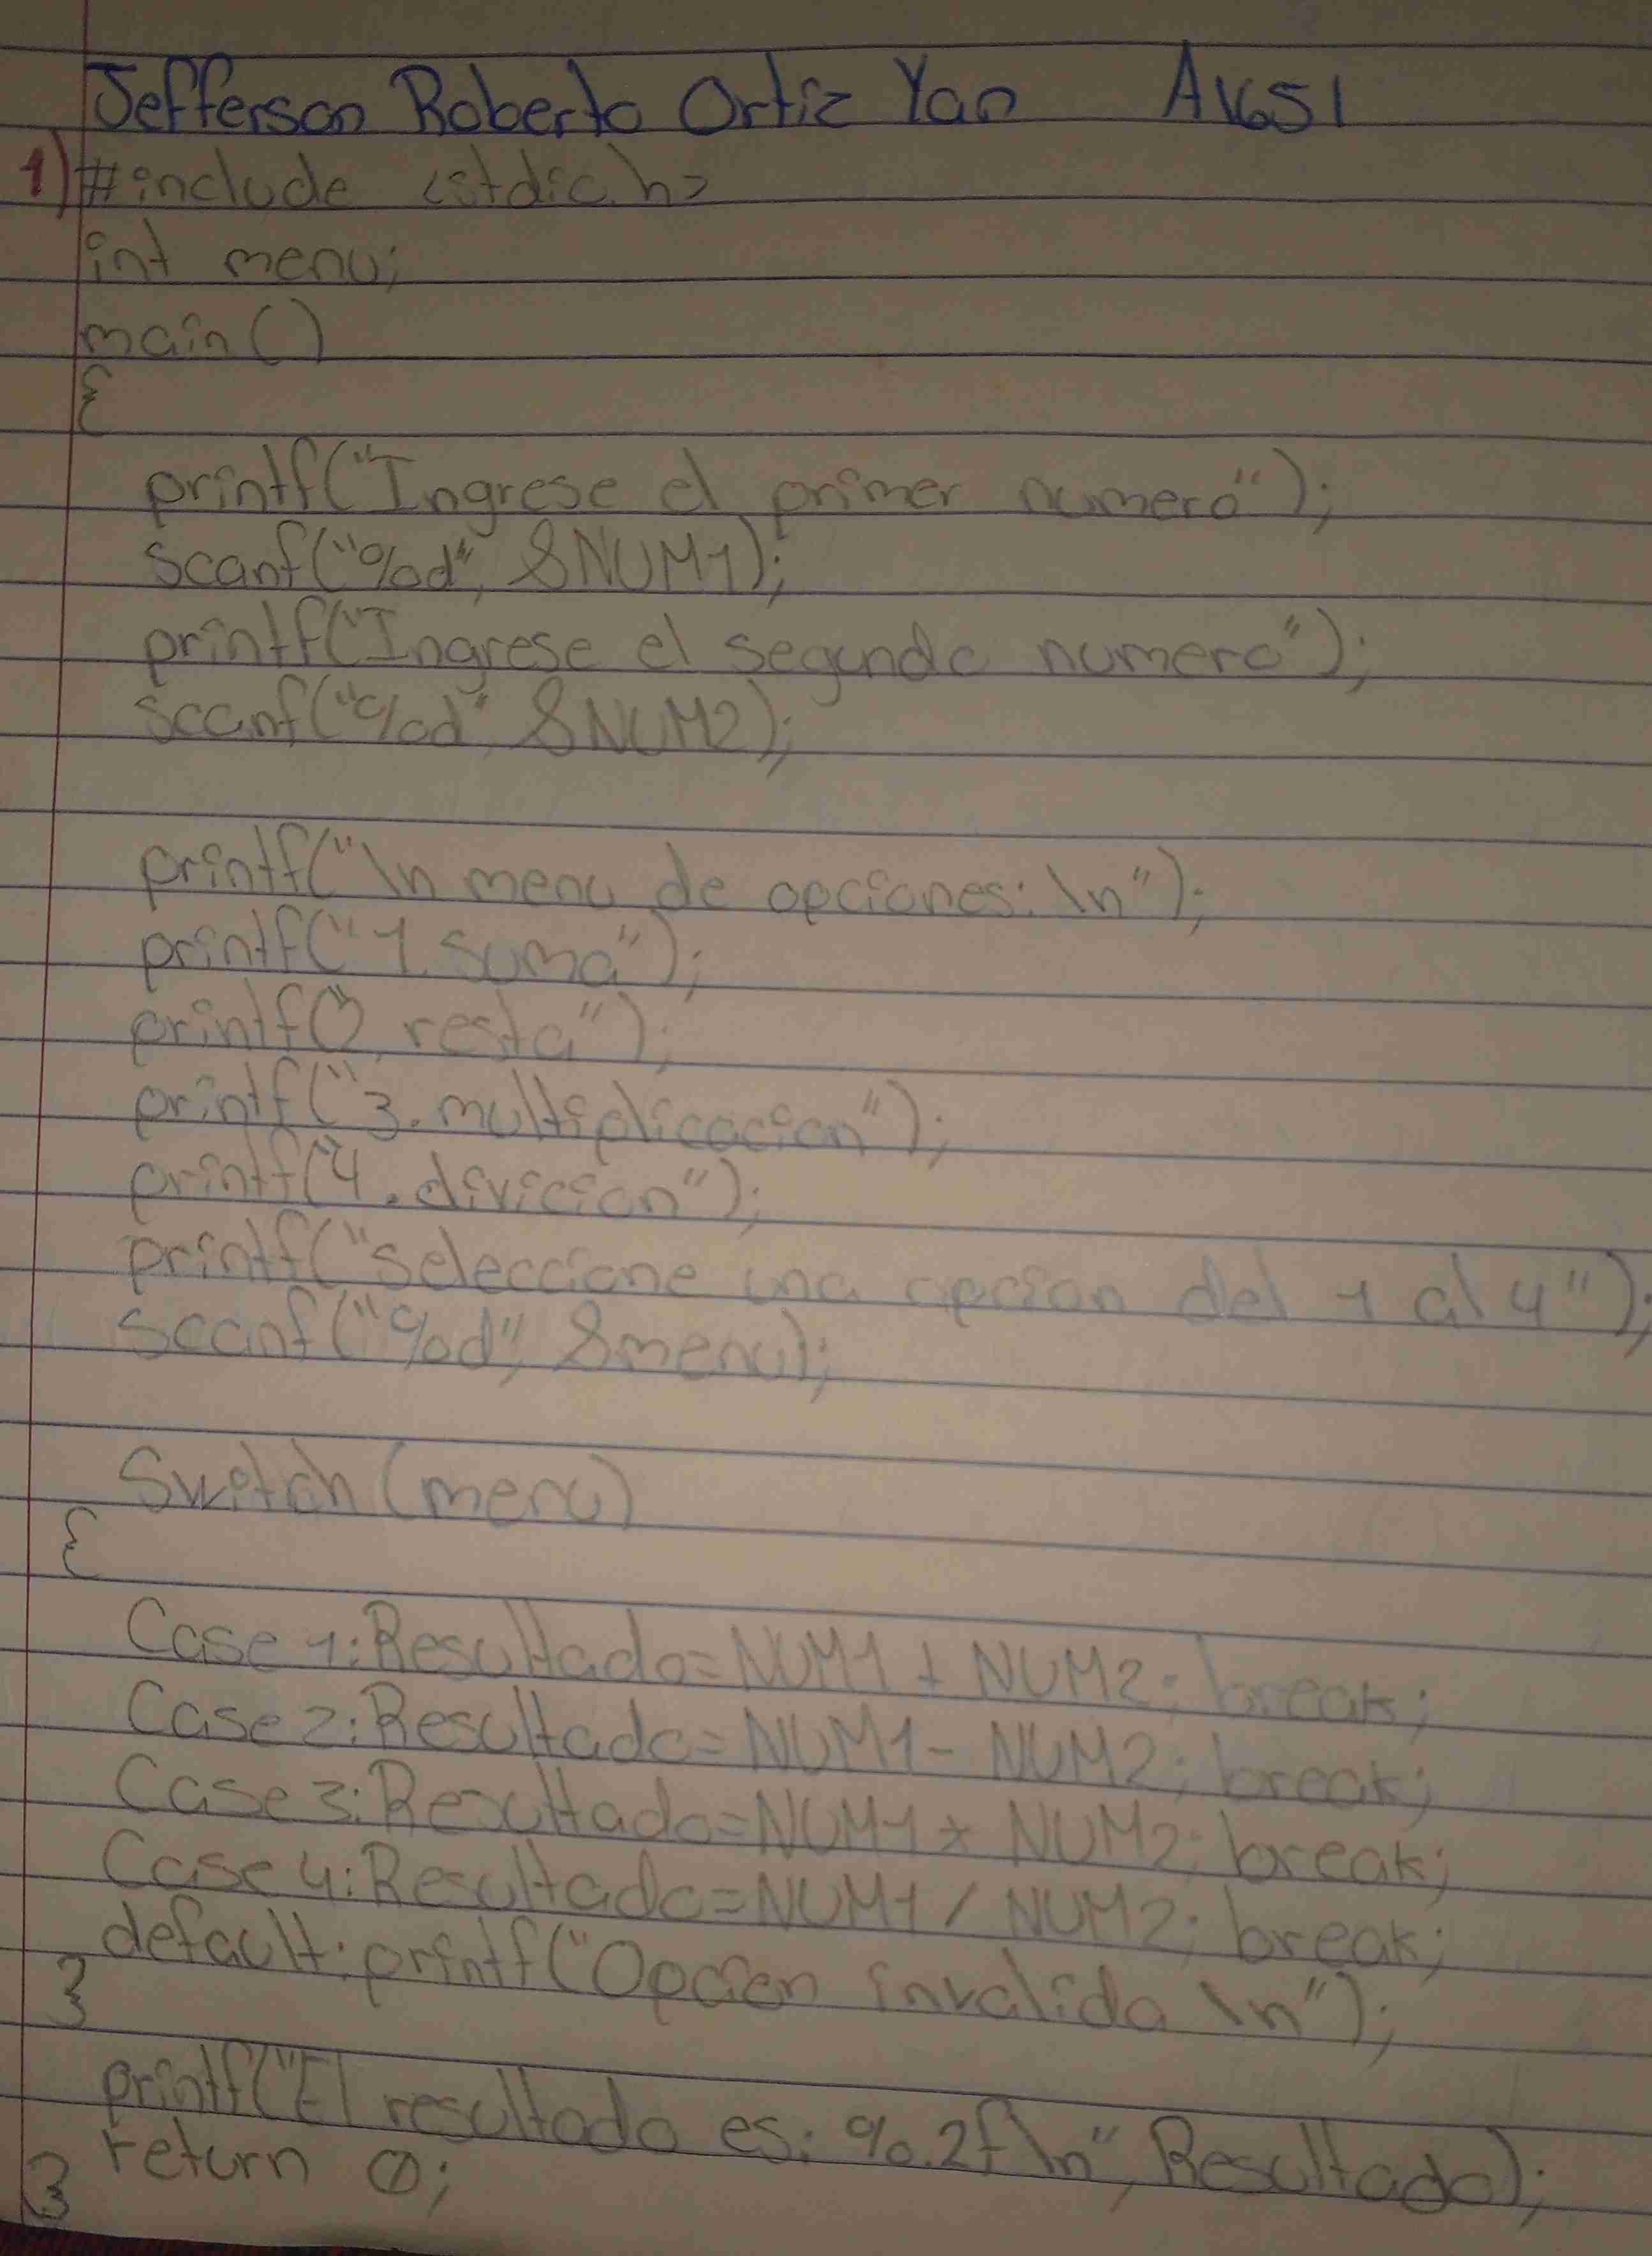 Jefferson Roberto Ortiz Yan A1651
1) #include <stdio.h>
int menu;
main()
{
printf("Ingrese el primer numero");
scanf("%d", &NUM1);
printf("Ingrese el segundo numero");
scanf("%d" &NUM2);
printf("\n menu de opciones: \n");
printf("1. suma");
printf(" resta");
printf("3. multiplicacion");
printf("4. divicion");
printf("seleccione una opcion del 1 al 4");
scanf("%d", &menu);
Switch (menu)
{
Case 1: Resultado=NUM1 + NUM2; break;
Case 2: Resultado=NUM1 - NUM2; break;
Case 3: Resultado=NUM1 * NUM2; break;
Case 4: Resultado=NUM1 / NUM2; break;
default: printf("Opcion invalida \n");
}
printf("El resultado es: %.2f\n", Resultado);
return 0;
}